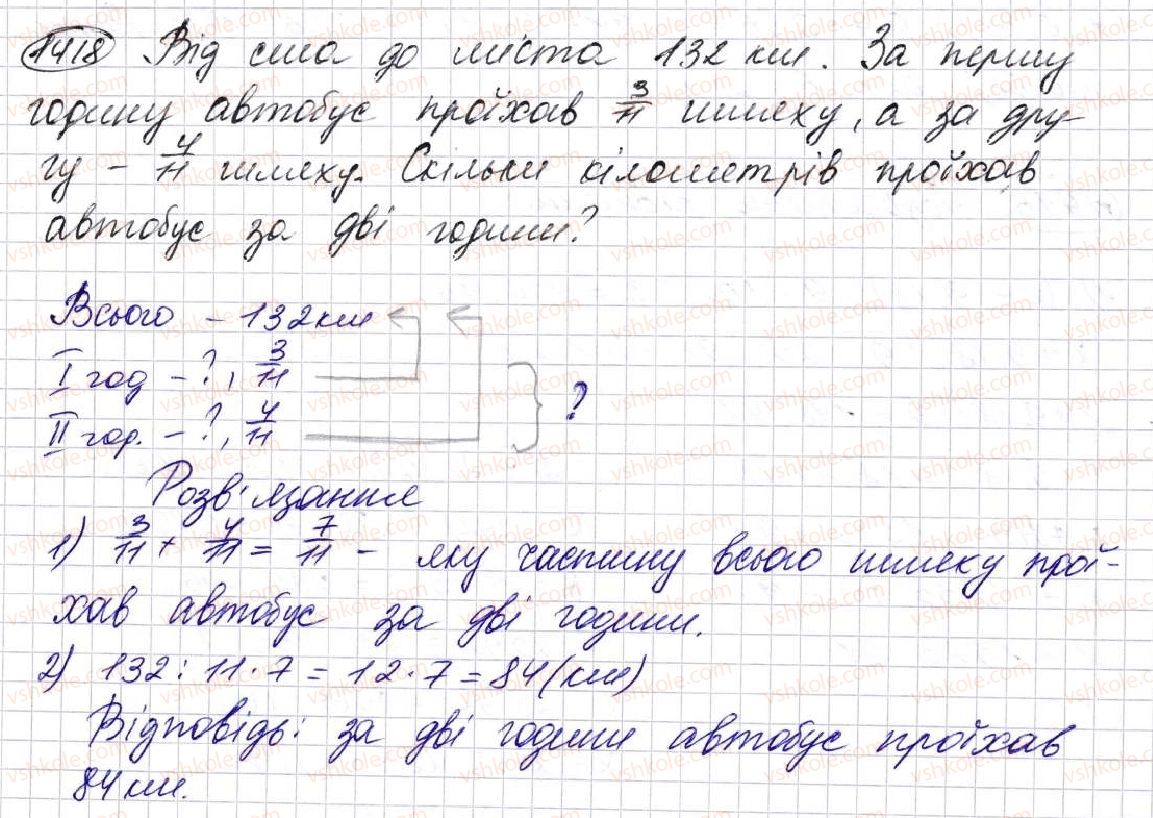 1418 Від села до міста 132 км. За першу
годину автобус проїхав 3/11 шляху, а за дру-
гу - 4/11 шляху. Скільки кілометрів проїхав
автобус за дві години?
Всього - 132 км
I год - ?, 3/11
II год. - ?, 4/11
?
Розв'язання
1) 3/11 + 4/11 = 7/11 - яку частину всього шляху прої-
хав автобус за дві години.
2) 132 : 11 · 7 = 12 · 7 = 84 (км)
Відповідь: за дві години автобус проїхав
84 км.